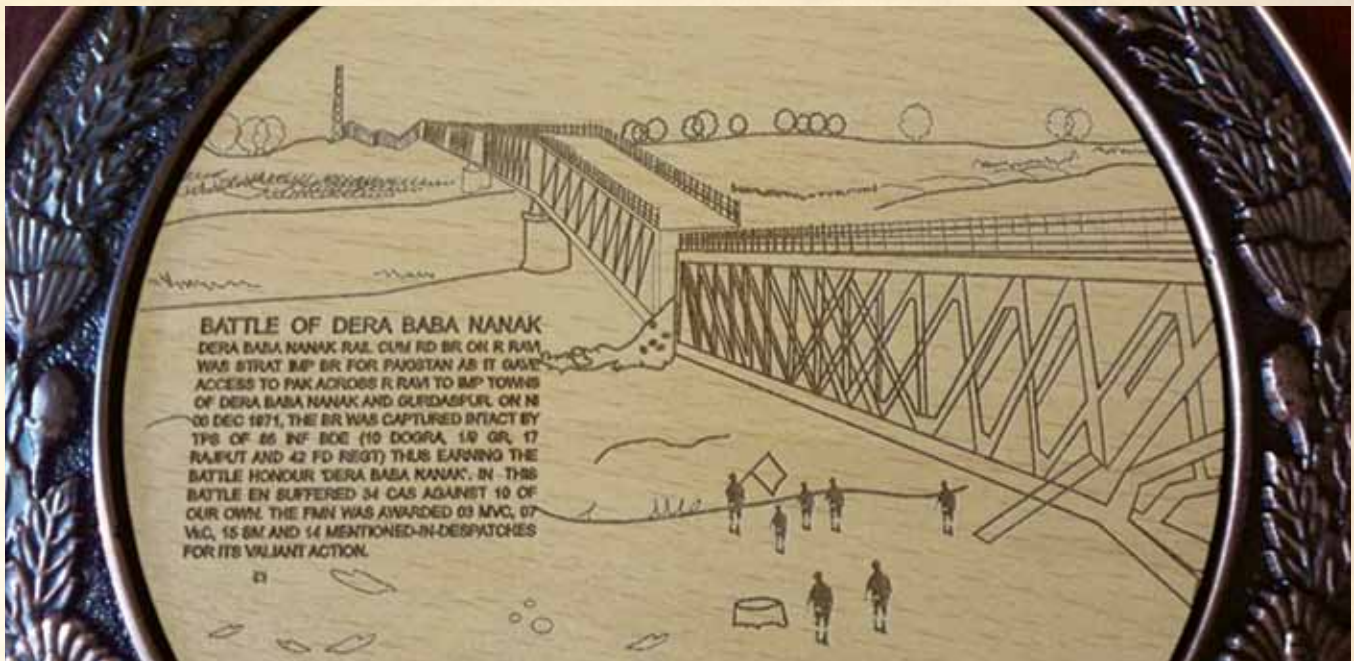 BATTLE OF DERA BABA NANAK
DERA BABA NANAK RAIL CUM RD BR ON R RAVI
WAS STRAT IMP BR FOR PAKISTAN AS IT GAVE
ACCESS TO PAK ACROSS R RAVI TO IMP TOWNS
OF DERA BABA NANAK AND GURDASPUR. ON NI
DEC 1971, THE BR WAS CAPTURED INTACT BY
TPS OF 86 INF BDE (10 DOGRA, 1/9 GR, 17
RAJPUT AND 42 FD REGT) THUS EARNING THE
BATTLE HONOUR 'DERA BABA NANAK'. IN THIS
BATTLE EN SUFFERED 34 CAS AGAINST 10 OF
OUR OWN. THE FMN WAS AWARDED 03 MVC, 07
VrC, 15 SM AND 14 MENTIONED-IN-DESPATCHES
FOR ITS VALIANT ACTION.